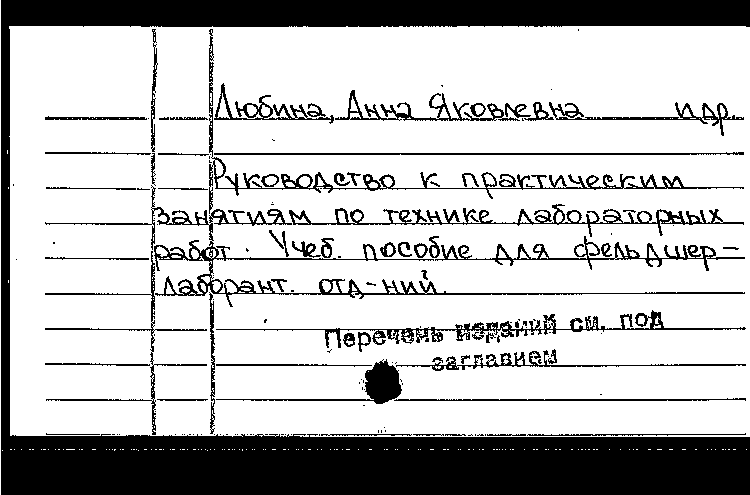 Любина, Анна Яковлевна и др.
Руководство к практическим
занятиям по технике лабораторных
работ. Учеб. пособие для фельдшер-
лаборант. отд-ний.
Перечень изданий см. под
заглавием